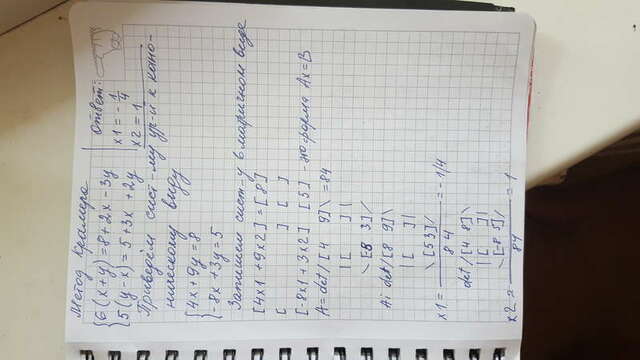 Метод Крамера
{6(x+y)=8+2x-3y
{5(y-x)=5+3x+2y
Приведём сист-му ур-й к кано-
ническому виду
{4x+9y=8
{-8x+3y=5
Запишем сист-у в матричном виде
[4x1+9x2]=[8]
[ ] [ ]
[-8x1+3x2] [5] - это форма Ax=B
A=det/[4 9]\=84
|[ ]|
\[8 3]/
Ai det/[8 9]\
|[ ]|
\[5 3]/
x1= ――― =-1/4
84
det/[4 8]\
|[ ]|
\[-8 5]/
x2= ――― =1
84
Ответ:
x1=-1/4
x2=1